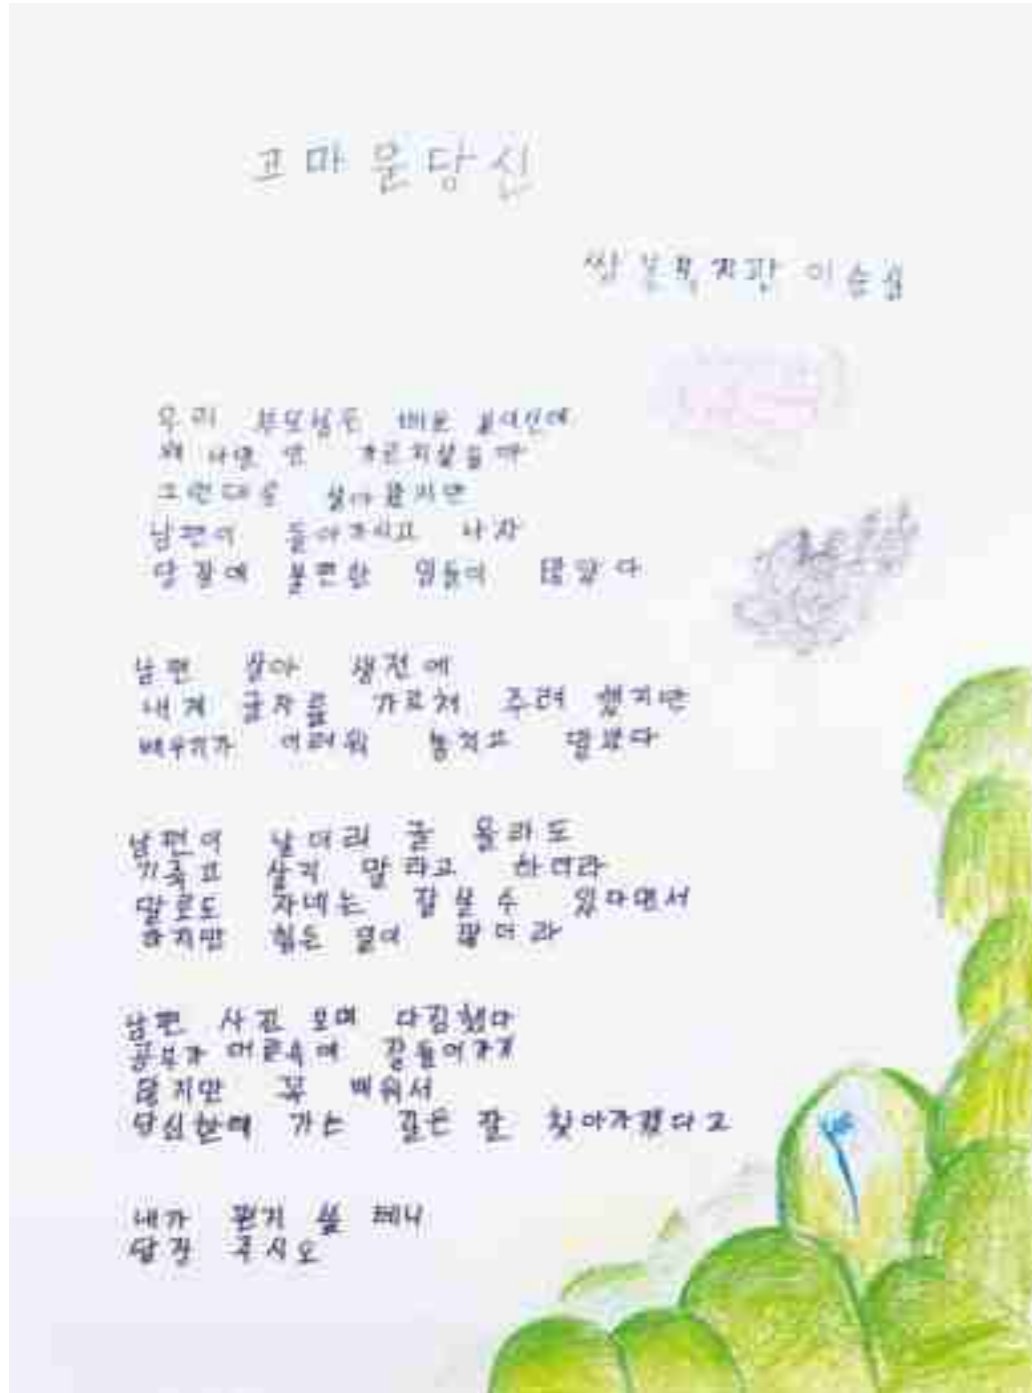 고마운당신
복지관 이순
우리 부모님은 배운 분이신데
왜 나만 안 가르치셨을까
그런대로 살아왔지만
남편이 돌아가시고 나자
당장에 불편한 일들이 많았다
남편 살아 생전에
내게 글자를 가르쳐 주려 했지만
배우기가 어려워 놓치고 말았다
남편이 날더러 글 몰라도
기죽고 살지 말라고 하더라
말로도 자네는 잘살 수 있다면서
하지만 힘든 일이 많더라
남편 사진 보며 다짐했다
공부가 머리속에 잘들어가지
않지만 꼭 배워서
당신한테 가는 길은 잘 찾아가겠다고
내가 편지 쓸 테니
답장 주시오